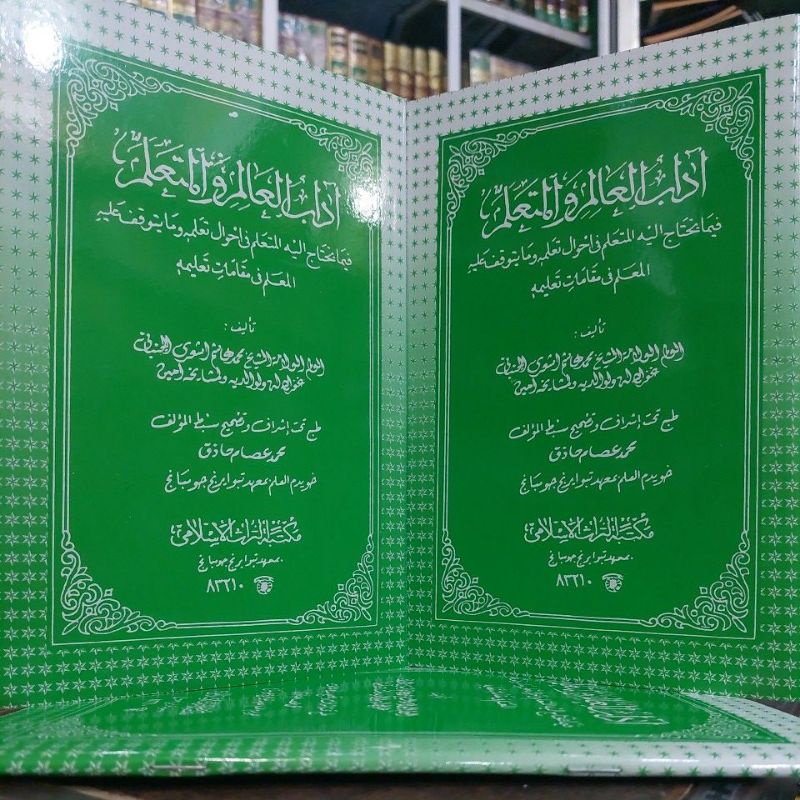 آداب العالم والمتعلم
فيما يحتاج اليه المتعلم في احوال تعلمه وما يتوقف عليه
المعلم في مقامات تعليمه
تأليف :
العالم العلامة الشيخ محمد هاشم اشعري
غفر الله له ولوالديه ولمشايخه آمين
طبع تحت إشراف وتصحيح سبط المؤلف
محمد عصام حاذق
خويدم العلم بمعهد تبوايرنج جومبانج
مكتبة التراث الإسلامي
بمعهد تبوايرنج جومبانج
٨٣٢١٠
آداب العالم والمتعلم
فيما يحتاج اليه المتعلم في احوال تعلمه وما يتوقف عليه
المعلم في مقامات تعليمه
تأليف :
العالم العلامة الشيخ محمد هاشم اشعري
غفر الله له ولوالديه ولمشايخه آمين
طبع تحت إشراف وتصحيح سبط المؤلف
محمد عصام حاذق
خويدم العلم بمعهد تبوايرنج جومبانج
مكتبة التراث الإسلامي
بمعهد تبوايرنج جومبانج
٨٣٢١٠